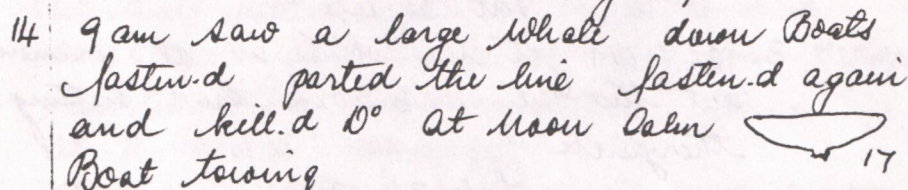 14 9 am saw a large whale down Boats
fasten.d parted the line fasten.d again
and kill.d Do at noon Calm
17
Boat towing